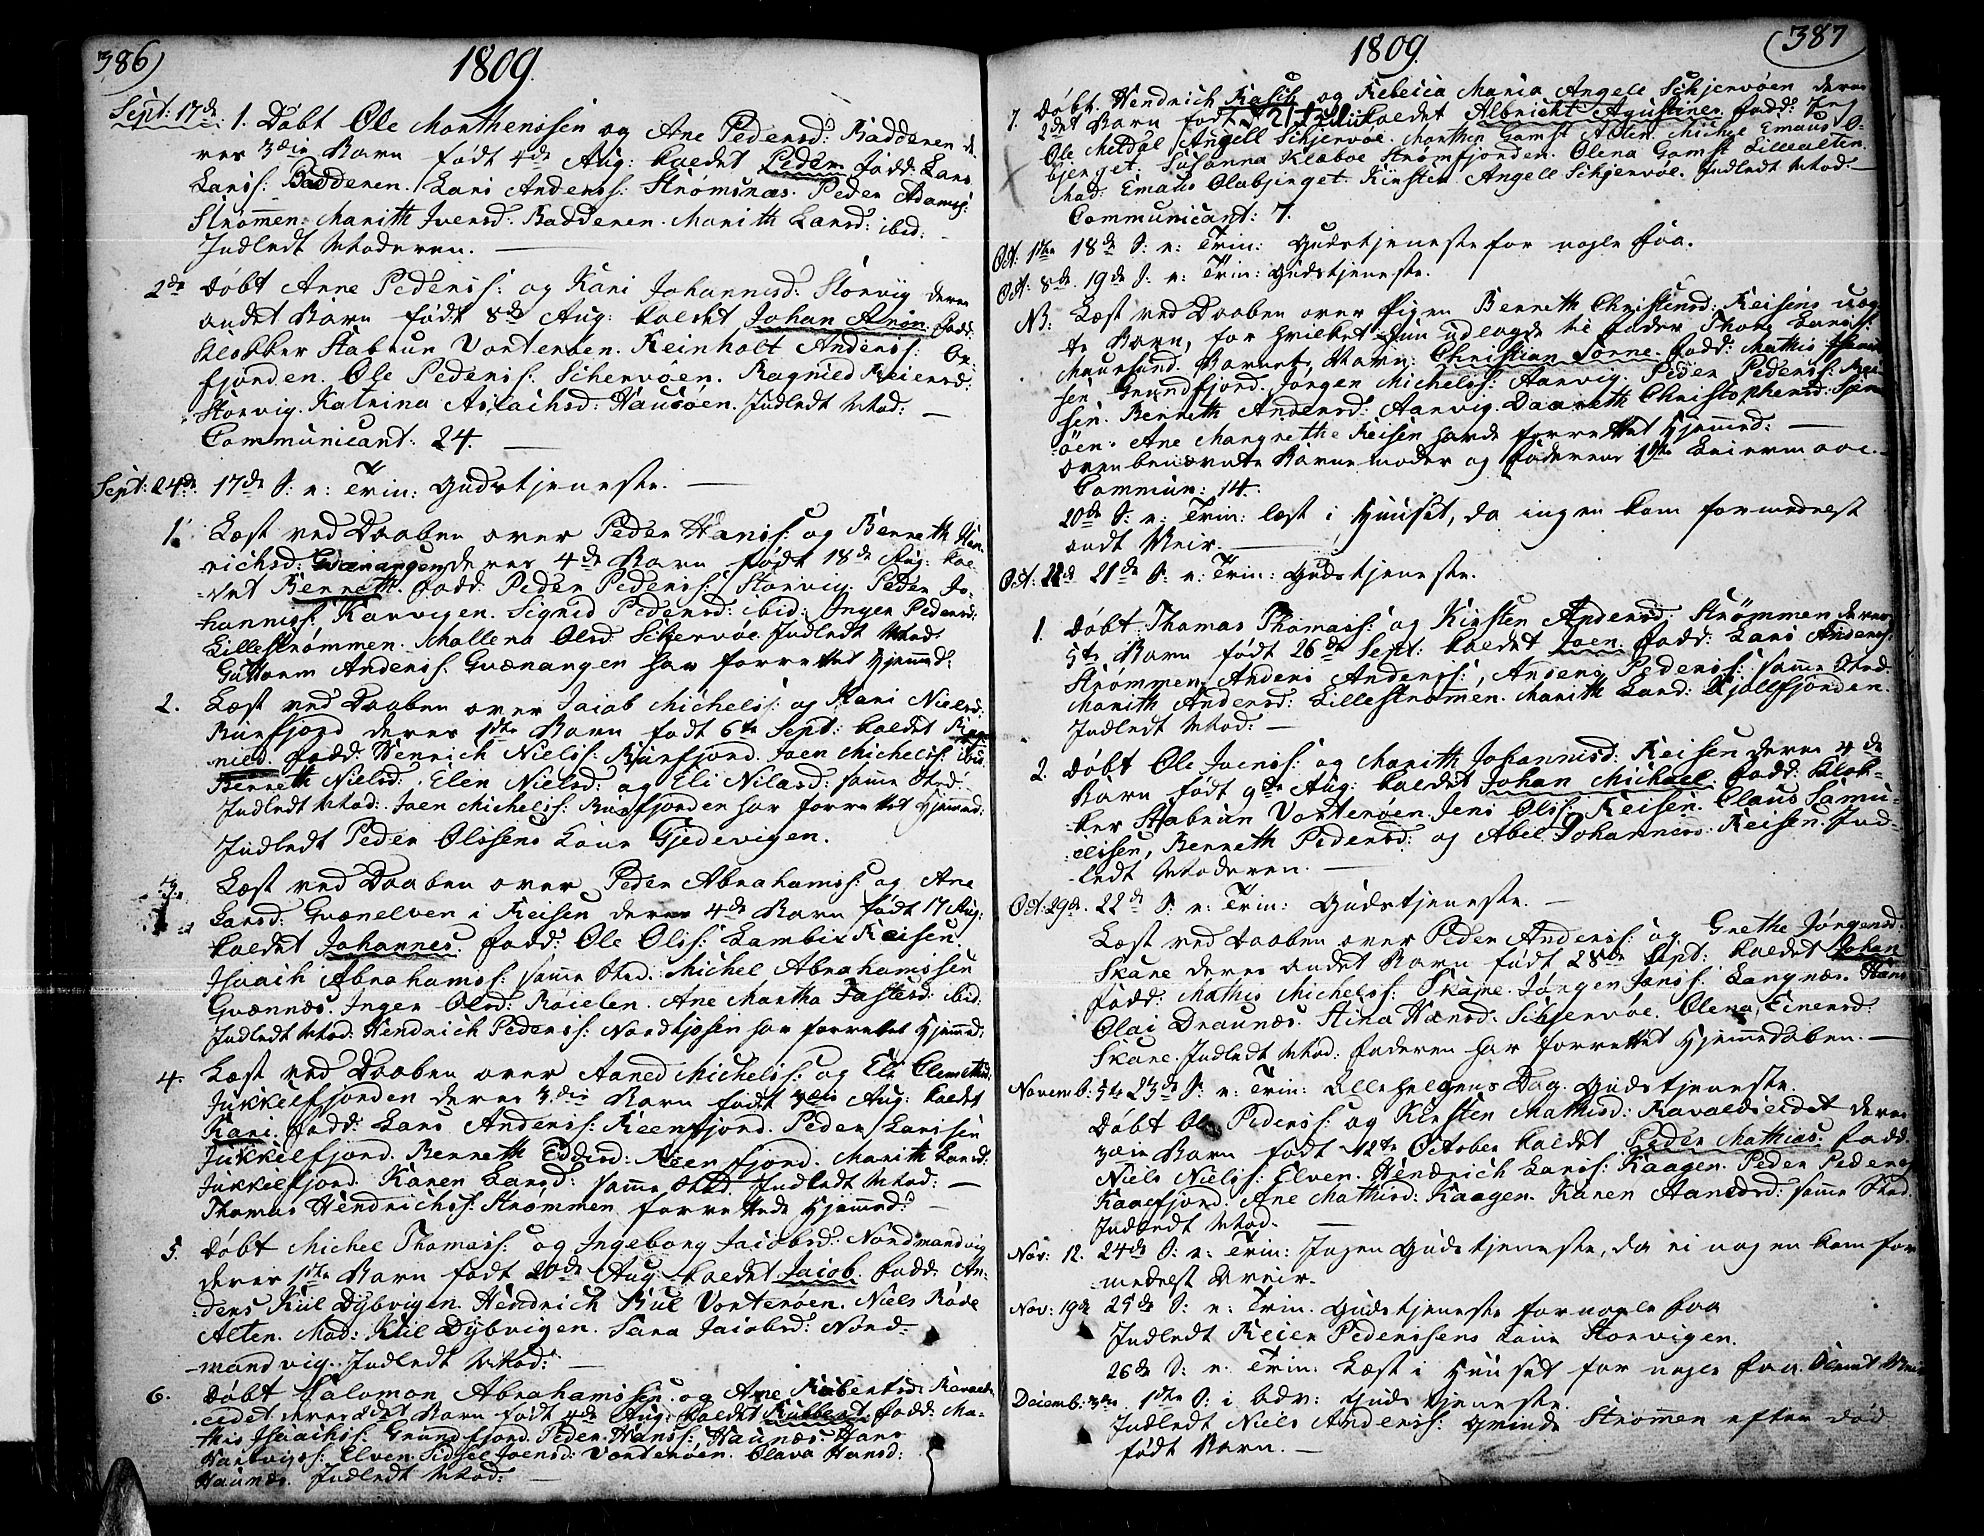 386)
1809.
Sept: 17de 1. Døbt Ole Morthenssen og Ane Pedersd: Badderen de-
res 3die Barn født 4de Aug: kaldet Peder fadd: Lars
Larss: Badderen. Lars Anderss: Strømsnæs. Peder Adamss:
Strømmen. Marith Iversd: Badderen. Marith Larsd: ibid:
Indledt Moderen. —
2de Døbt Anne Pederss: og Kari Johannisd: Storvig deres
andet Barn født 8de Aug: kaldet Johan Aron fadd:
Klokker Stabrun Vorterøen. Reinholt Anderss: Ox-
fjorden. Ole Pederss: Schervøen. Ragnild Reiersd:
Storvig. Katrina Aslachsd: Hausøen. Indledt Mod: —
Communicant: 24. —
Sept: 24de 17de S: e: Trin: Gudstjeneste. —
1. Læst ved Daaben over Peder Hanss: og Berreth Hen-
richsd: Qvænangen deres 4de Barn født 18de Aug: kal-
det Berreth. fadd: Peder Pederss: Storvig. Peder Jo-
hanniss: Karvigen. Sigrid Pedersd: ibid: Inger Pedersd:
Lillestrømmen. Mallena Olsd: Schervøe. Indledt Mod:
Guttorm Anderss: Qvænangen har forrettet Hjemmed:
2. Læst ved Daaben over Jacob Michelss: og Kari Nielsd:
Burfjord deres 1ste Barn født 6te Sept: kaldet Rag-
nild. fadd: Henrich Nielss: Burfjord. Joen Michelss: ibid:
Berreth Nielsd: Elen Nielsd: og Eli Nilsd: samme Sted.
Indledt Mod: Joen Michelss: Burfjorden har forrettet Hjemmed:
Indledt Peder Olssens Kone Gjedevigen.
3. Læst ved Daaben over Peder Abrahamss: og Ane
Larsd: Qvænelven i Reisen deres 4de Barn født 17 Aug:
kaldet Johannes. fadd: Ole Olss: Lambi Reisen.
Isaach Abrahamss: samme Sted. Michel Abrahamssen
Qvænnæs. Inger Olsd: Røielen. Ane Martha Fastesd: ibid:
Indledt Mod: Hendrich Pederss: Nordkjosen har forrettet Hjemmed:
4. Læst ved Daaben over Aaned Michelss: og Eli Clemetsd:
Jukkelfjorden deres 3die Barn født 3die Aug: kaldet
Kari. fadd: Lars Anderss: Reenfjord. Peder Larssen
Jukkelfjord. Berreth Eddisd: Reenfjord. Marith Larsd:
Jukkelfjord. Karen Larsd: samme Sted. Indledt Mod: —
Thomas Hendrichss: Strømmen forrettede Hjemmed: —
5. Døbt Michel Thomass: og Ingeborg Jacobsd: Nordmandvig
deres 1ste Barn født 20de Aug: kaldet Jacob. fadd: An-
ders Kiil Dybvigen. Hendrich Kiil Vorterøen. Niels Røde
Alten. Mad: Kiil Dybvigen. Sara Jacobsd: Nord-
mandvig. Indledt Mod: —
6. Døbt Salomon Abrahamssen og Ane Robertsd: Ravals-
eidet deres 2det Barn født 4de Aug: kaldet Rubbert. fadd: Ma-
this Isachss: Grundfjord. Peder Hanss: Haunæs. Hans
Hartvigss: Elven. Sidsel Joensd: Vorterøen. Olava Hansd:
Haunæs. Indledt Mod: —
(387
1809.
7. Døbt Hendrich Rasch og Rebecca Maria Angell Schjervøen deres
2det Barn født 21 Juli kaldet Albricht Agustinus fadd:
Ole Meldal Angell Schjervøe. Morthen Gamst Alten. Michel Emaus O-
bjerget. Susanna Klæboe Strømfjorden. Olena Gamst Lillealten.
Mad: Emaus Olabjerget. Kirsten Angell Schjervøe. Indledt Mod: —
Communicant: 7.
Oct: 1ste 18de S: e: Trin: Gudstjeneste for nogle faa.
Oct: 8de 19de S: e: Trin: Gudstjeneste.
NB: Læst ved Daaben over Pigen Berreth Christensd: Reisens uæg-
te Barn, for hvilket hun udlagde til fader Thore Larss:
Maursund. Barnets Navn: Christian Torne. fadd: Mathis
sen Grundfjord. Jørgen Michelss: Aarvig. Peder Pederss: Rei-
sen. Berreth Andersd: Aarvig. Daareth Christophersd: Spin-
øen. Ane Margrethe Reisen havde forrettet Hjemmed: —
ovenbenævnte Barnemoder og faderens 1ste Leiermaal.
Commun: 14.
20de S: e: Trin: læst i Huuset, da ingen kom formedelst
ondt Veir. —
Oct: 22de 21de S: e: Trin: Gudstjeneste.
1. Døbt Thomas Thomass: og Kirsten Andersd: Strømmen deres
5te Barn født 26de Sept: kaldet Joen. fadd: Lars Anderss:
Strømmen, Anders Anderss:, Anders Pederss: samme Sted.
Marith Andersd: Lillestrømmen. Marith Larsd: Kjollefjorden.
Indledt Mod: —
2. Døbt Ole Joenss: og Marith Johannisd: Reisen deres 4de
Barn født 9de Aug: kaldet Johan Michael. fadd: Klok-
ker Stabrun Vorterøen. Jens Olss: Reisen. Claus Samu-
elsen, Berreth Pedersd: og Abel Johannisd: Reisen. Ind-
ledt Moderen. —
Oct: 29de. 22de S: e: Trin: Gudstjeneste. —
Læst ved Daaben over Peder Anderss: og Grethe Jørgensd:
Skare deres andet Barn født 28de Sept: kaldet Johan
fadd: Mathis Michelss: Skare. Jørgen Jonss: Langnæs. Hans
Olai Draunæs. Stina Hansd: Schjervøe. Olena Einersd:
Skare. Indledt Mod: faderen har forrettet Hjemmedaaben. —
Novemb: 5te 23de S: e: Trin: Allehelgens Dag. Gudstjeneste.
Døbt Ole Pederss: og Kirsten Mathisd: Ravaldseidet deres
3die Barn født 12te October kaldet Peder Mathias. fadd:
Niels Nielss: Elven. Hendrich Larss: Kaagen. Peder Pederss
Kaaefjord. Ane Mathisd: Kaagen. Karen Aanedsd: samme Sted.
Indledt Mod. —
Nov: 12. 24de S: e: Trin: Ingen Gudstjeneste, da ei nogen kom for-
medelst Uveir.
Nov: 19de 25de S: e: Trin: Gudstjeneste for nogle faa
Indledt Reier Pederssens Kone Storvigen.
26de S: e: Trin: Læst i Huuset for nogle faa. Ulemt Veir
Decemb: 3de. 1ste S: i Adv: Gudstjeneste.
Indledt Niels Anderss: Qvinde Strømmen efter død-
født Barn. —